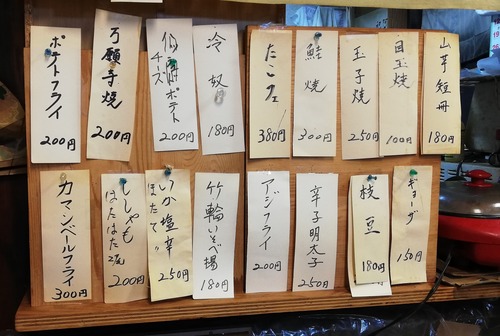 山芋短冊
180円
目玉焼
100円
玉子焼
250円
鮭焼
300円
たこ
380円
冷奴
180円
ポテト
チーズ
200円
万願寺焼
200円
ポテトフライ
200円
ギョーザ
150円
枝豆
180円
辛子明太子
250円
アジフライ
200円
竹輪いそべ揚
180円
いか塩辛
ほたて 〃
250円
ししゃも
はたはた2尾
200円
カマンベールフライ
300円